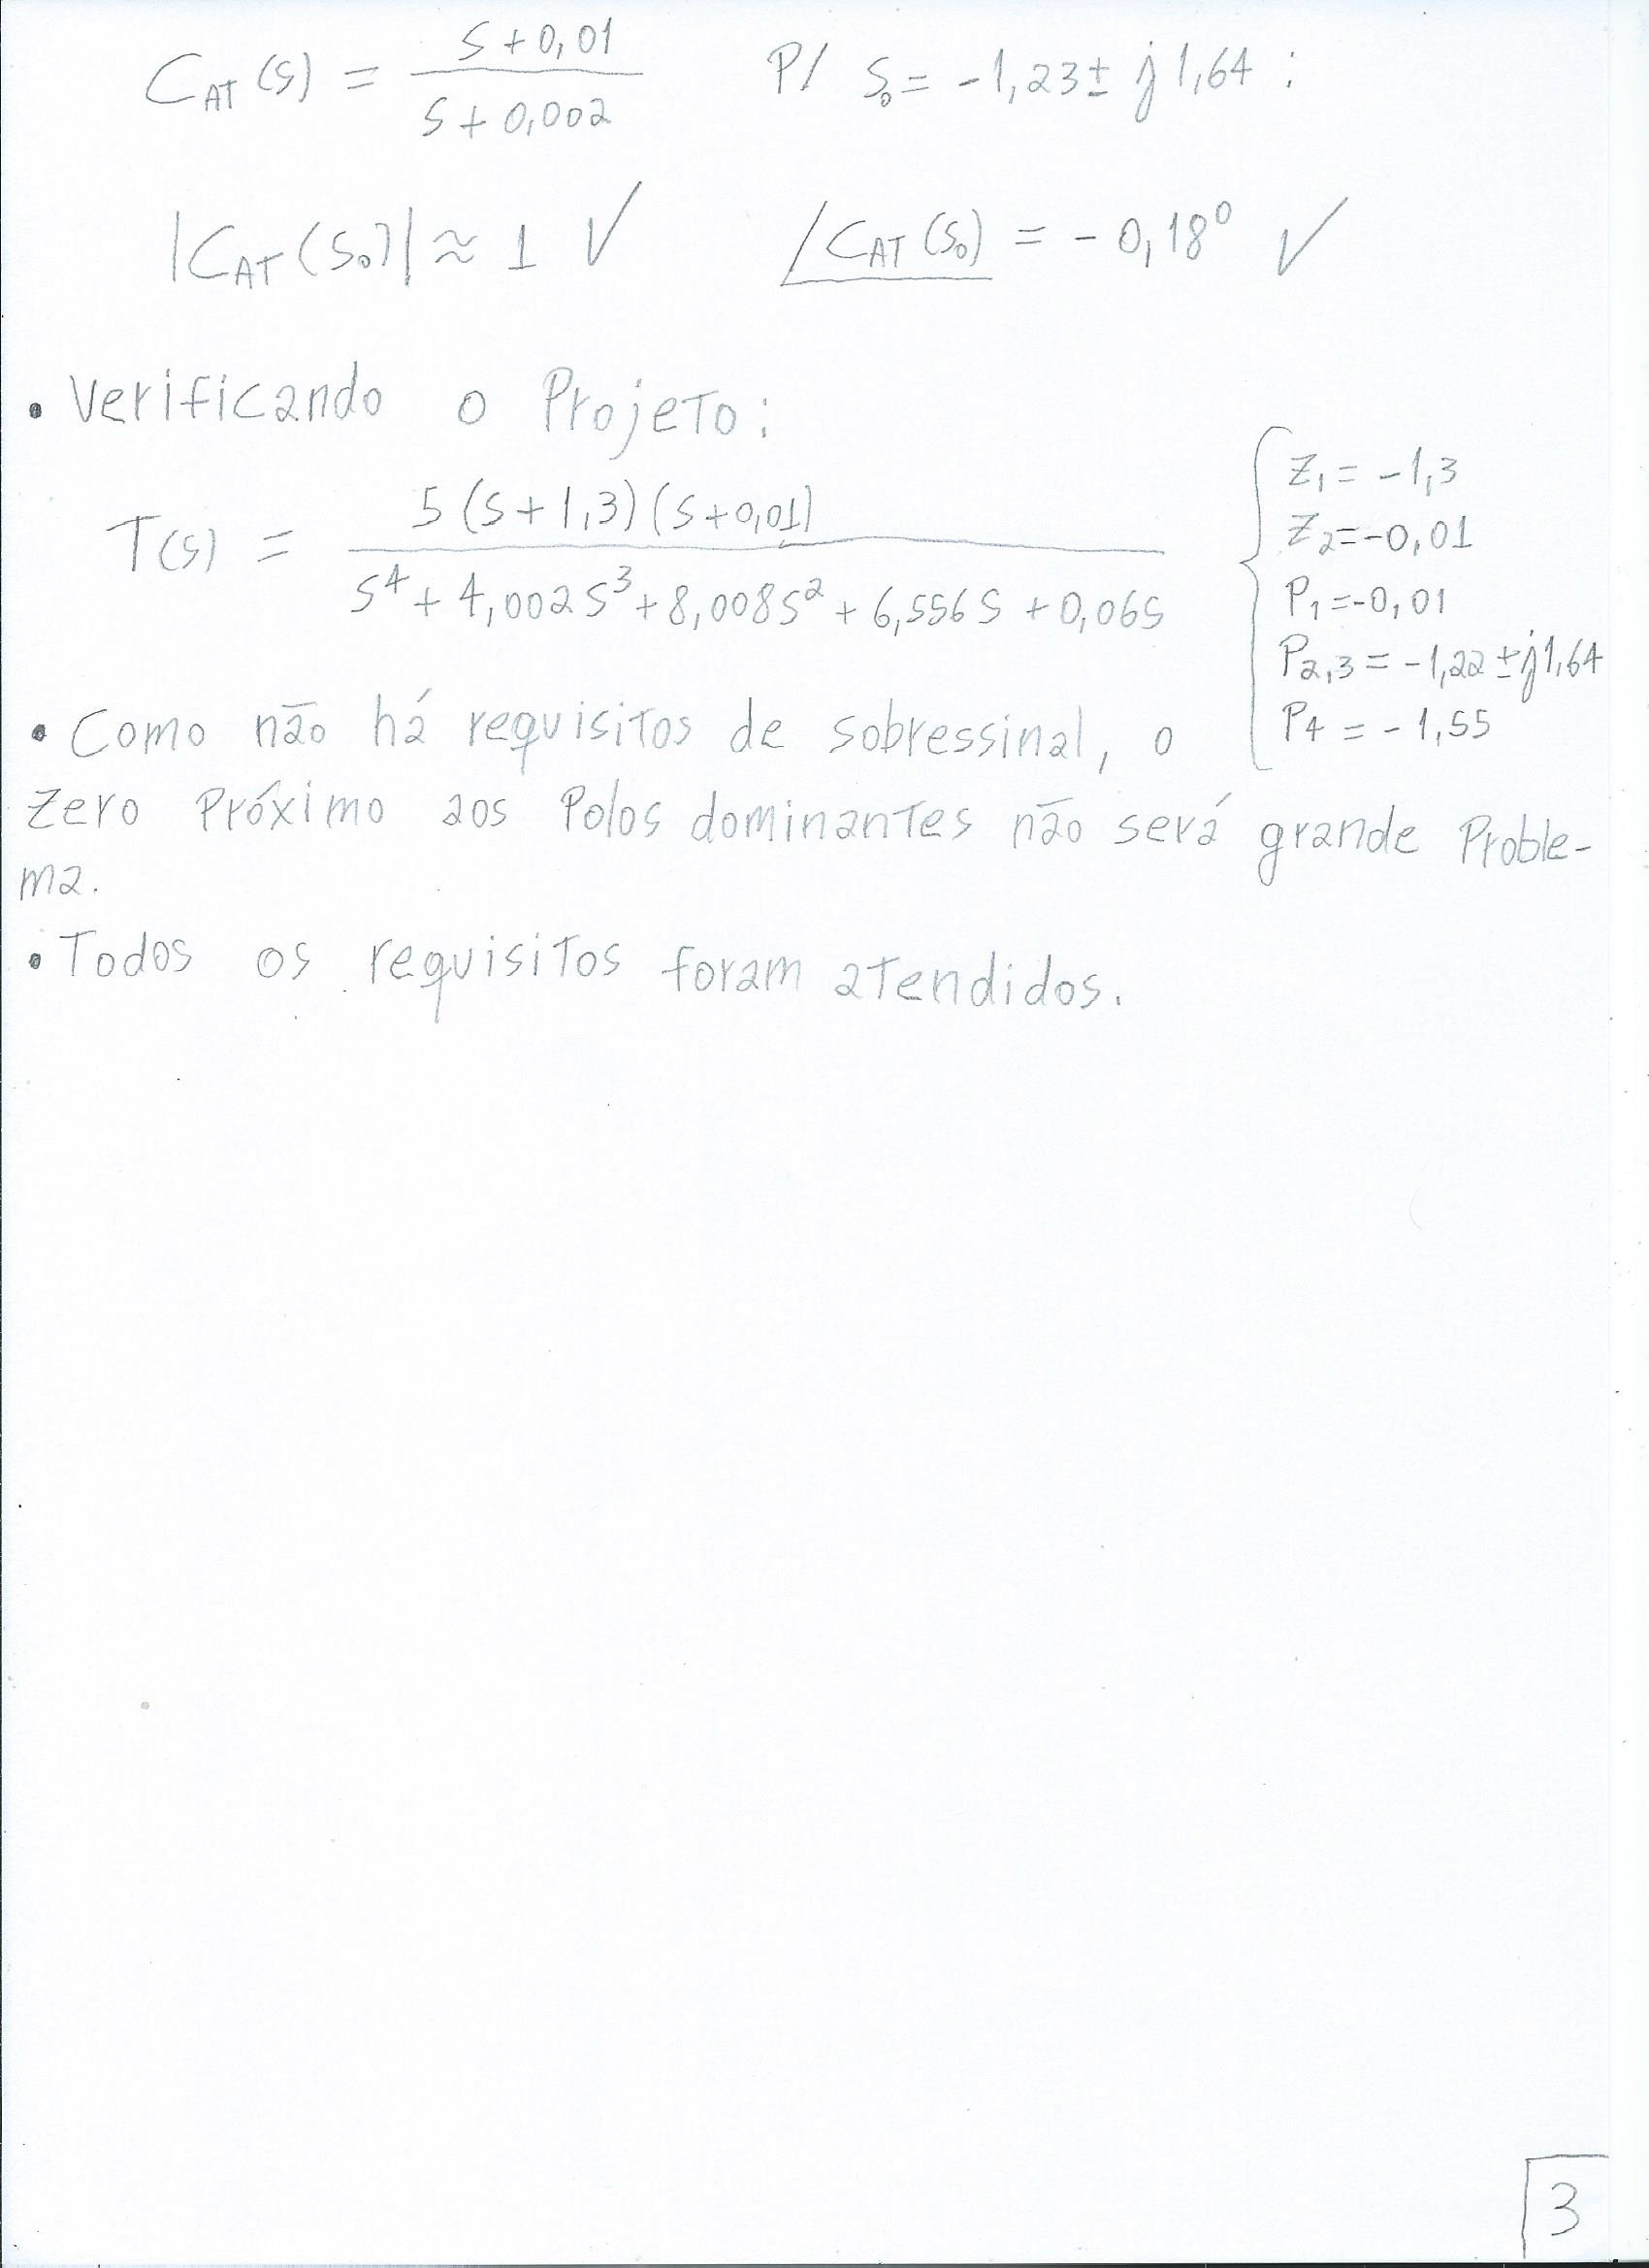 C_AT(s) = (s+0,01)/(s+0,002)    P/ s₀ = -1,23 ± j1,64 :
|C_AT(s₀)| ≈ 1 ✓    ∠C_AT(s₀) = -0,18° ✓
• Verificando o Projeto:
T(s) = 5(s+1,3)(s+0,01) / (s⁴+4,002s³+8,008s²+6,556s+0,065)
Z₁ = -1,3
Z₂ = -0,01
P₁ = -0,01
P₂,₃ = -1,22 ± j1,64
P₄ = -1,55
• Como não há requisitos de sobressinal, o
zero Próximo aos Polos dominantes não será grande Proble-
ma.
• Todos os requisitos foram atendidos.
3